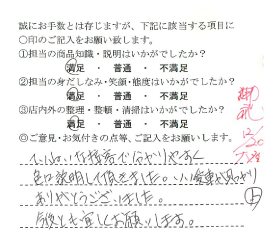 誠にお手数とは存じますが、下記に該当する項目に
○印のご記入をお願い致します。
①担当の商品知識・説明はいかがでしたか？
満足 ・ 普通 ・ 不満足
②担当の身だしなみ・笑顔・態度はいかがでしたか？
満足 ・ 普通 ・ 不満足
③店内外の整理・整頓・清掃はいかがでしたか？
満足 ・ 普通 ・ 不満足
◎ご意見・お気付きの点等、ご記入をお願いします。
ていねいな接客で分かりやすく
色々説明して頂きました。いい愛車が見つかり
ありがとうございました。
今後とも宜しくお願いします。
御礼
12/20